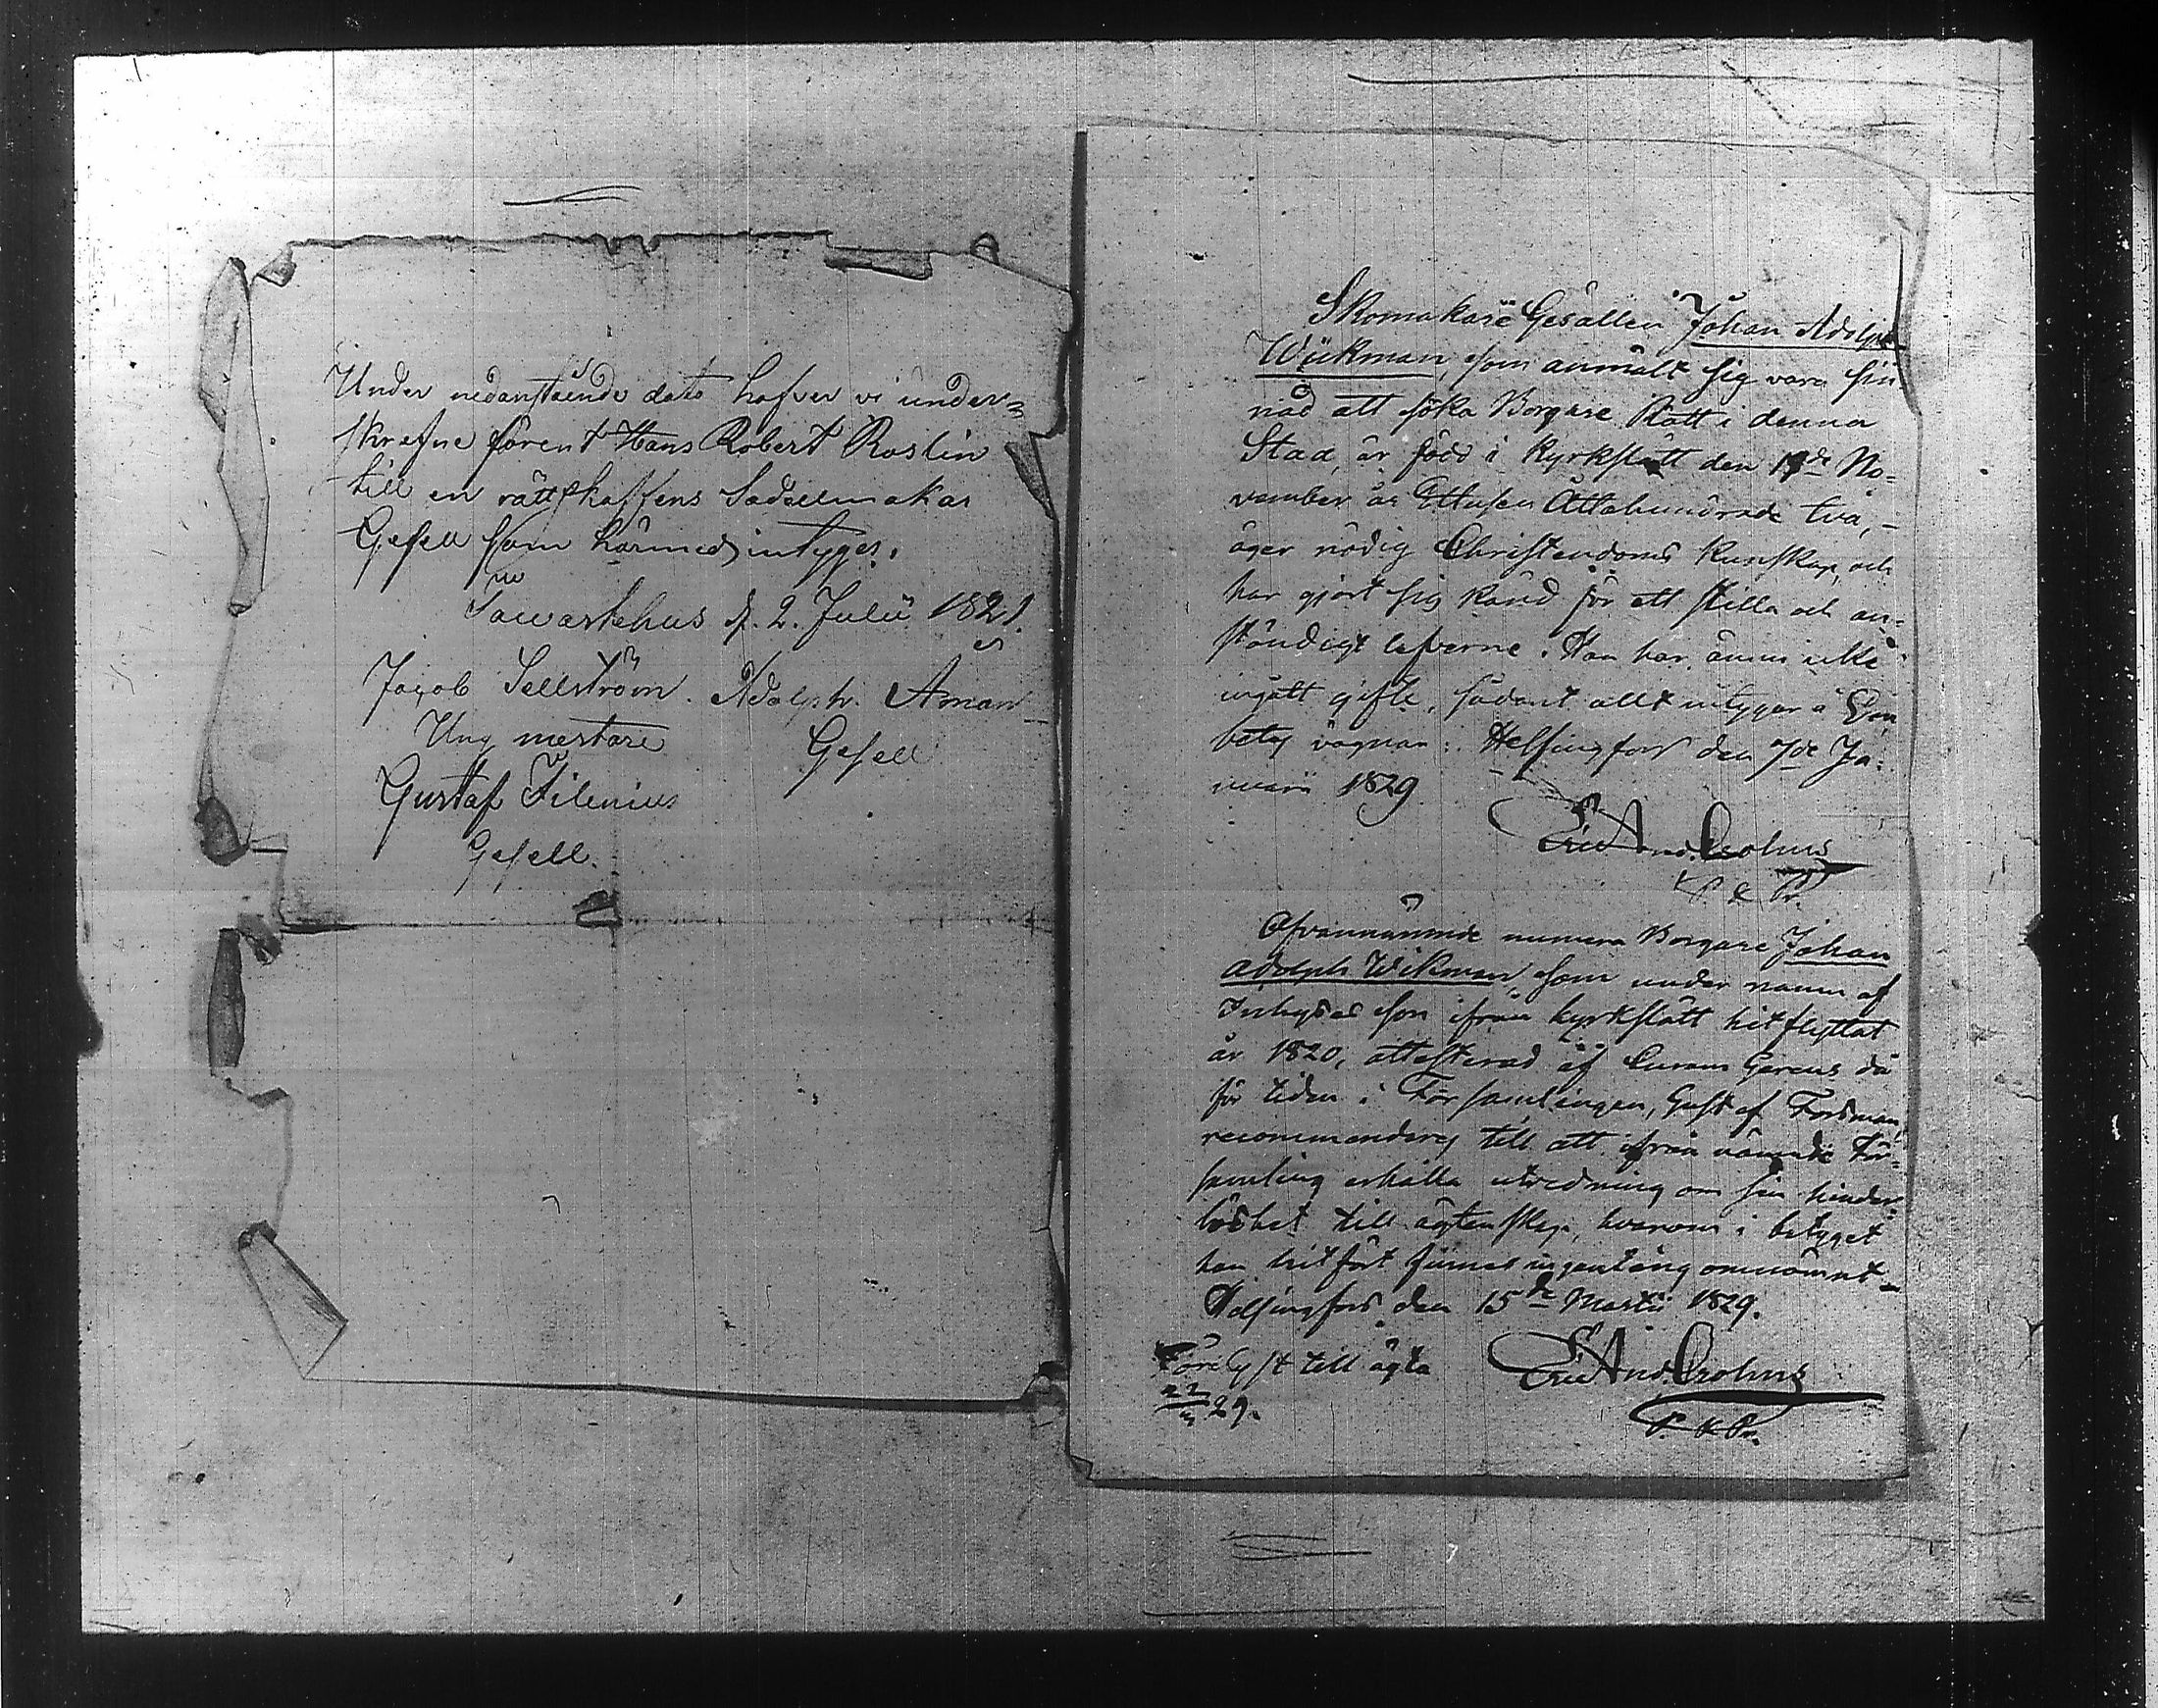 Under nedanstående dato hafver vi under=
skrefne förent Hans Robert Roslin
till en rättskaffens Sadellmakar
Gesell som härmed intyges.
Tawastehus d. 2. Julii 1821.
Jacob Sellström. Adolph. Aman
Ung mestare Gesell
Gustaf Filenius
Gesell.
Skomakare Gesällen Johan Adolph
Wiikman, som anmält sig vara sin
nad att söka Borgare Rätt i denna
Stad, är född i Kyrkslätt den de No=
vember år Ettusen Åttahundrade två,
äger nödig Christendoms kunskap, och
har gjort sig känd för ett stilla och an=
ständigt lefverne. Han har ännu icke
ingått gifte, sådant allt intygar å Em
betes vägnar: Helsingfors den 7de Ja=
nuarii 1829
Eric And. Crohns
P. & Pr.
Ofvannämnde numera Borgare Johan
Adolph Wikman, som under namn af
Inhyses son ifrån Kyrkslätt hitflyttat
år 1820, attesterad af Curam Gerens då
för tiden i Församlingen, Gustaf Forsman,
recommenderas till att ifrån nämnde För=
samling erhålla utredning om sin hinder=
löshet till ägtenskap, hvarom i betyget
han hitfört finnes ingenting omnämnt
Helsingfors den 15de Martii 1829.
Förelyst till ägta Eric And. Crohns
22/3 29. P. & Pr.